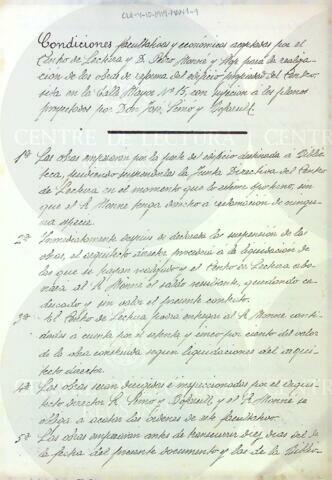 CLR-4-10-1919-MAN-1-1
Condiciones facultativas y económicas aceptadas por el
Centro de Lectura y D. Pedro Monné y Hijo para la realiza-
cion de las obras de reforma del edificio propiedad del Centro,
sito en la Calle Mayor Nº 15, con sujeción á los planos
proyectados por Don Juan Simó y Bofarull.
CENTRE DE LECTURA
1ª Las obras empezaran por la parte del edificio destinada á Biblio-
teca, pudiendo suspenderlas la Junta Directiva del Centro
de Lectura en el momento que lo estime oportuno, sin
que el Sr Monné tenga derecho a reclamacion de ninguna
especie.
2ª Inmediatamente despues de declarada la suspensión de las
obras, el arquitecto director procederá á la liquidacion de
las que se hayan realizado y el Centro de Lectura abo-
nará al Sr Monné el saldo resultante, quedando ca-
ducado y sin valor el presente contrato.
3ª El Centro de Lectura podrá entregar al Sr Monné canti-
dades a cuenta por el setenta y cinco por ciento del valor
de la obra construida segun liquidaciones del arqui-
tecto director.
4ª Las obras seran dirigidas é inspeccionadas por el arqui-
tecto director Sr Simó y Bofarull y el Sr Monné se
obliga a acatar las ordenes de este facultativo.
5ª Las obras empezaran antes de transcurrir diez dias del de
la fecha del presente documento y las de la Biblio-